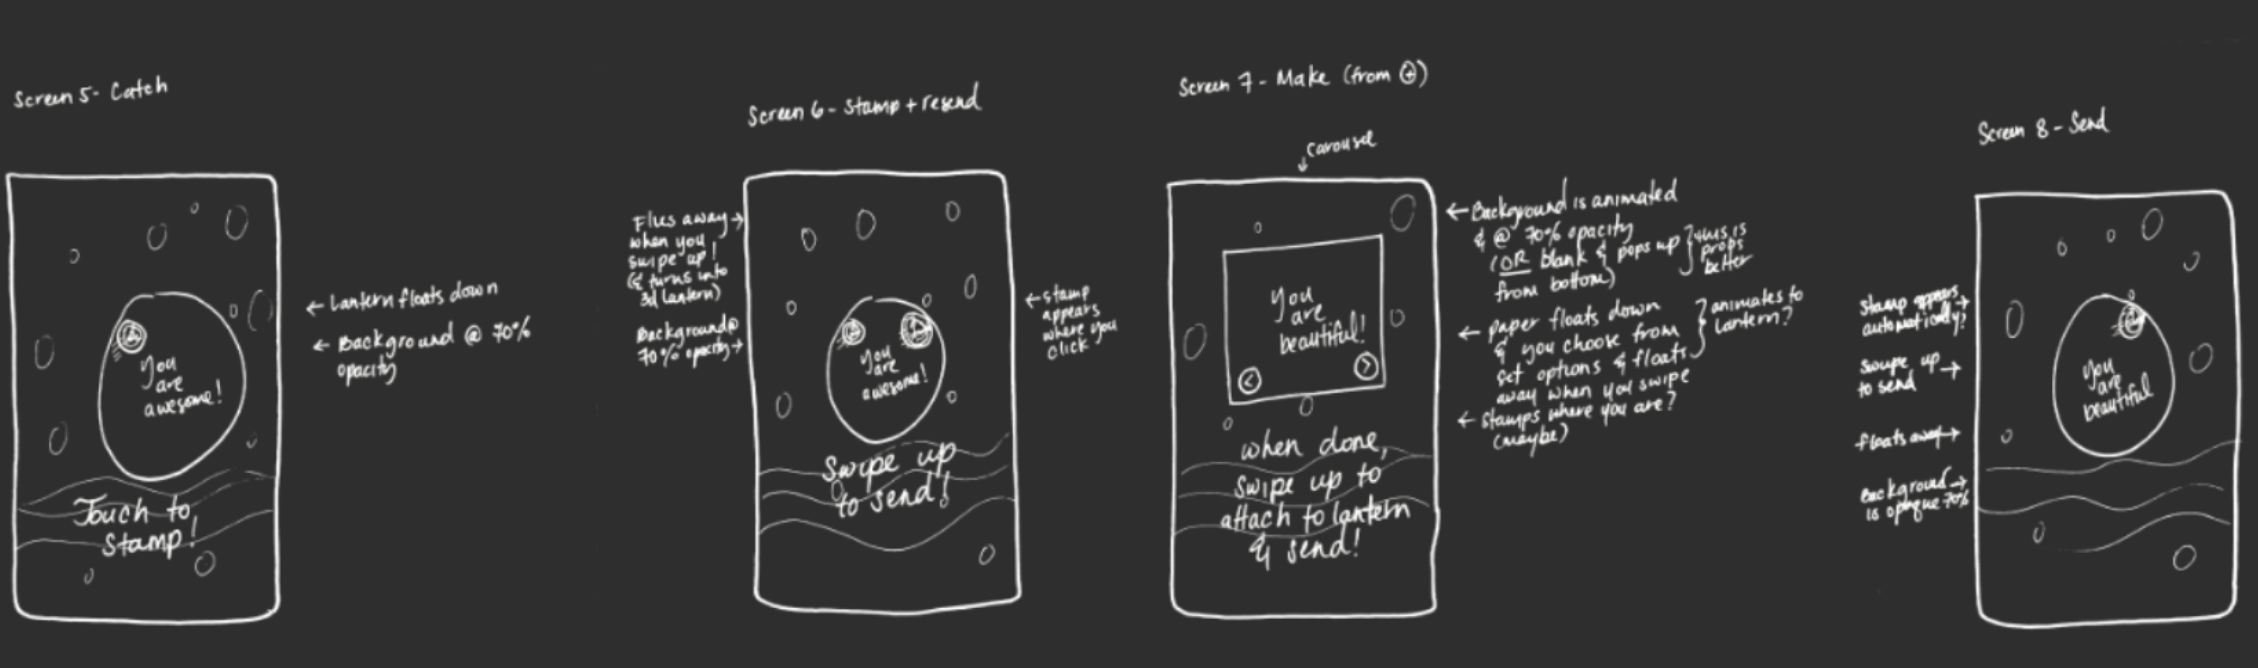 Screen 5- Catch
You
are
awesome!
Touch to
Stamp!
← Lantern floats down
← Background @ 70%
opacity
Screen 6- Stamp + resend
Flies away →
when you
swipe up!
(& turns into
3d lantern)
Background @
70% opacity →
You
are
awesome!
Swipe up
to send!
← Stamp
appears
where you
click
Screen 7- Make (from +)
Carousel
↓
You
are
beautiful!
<
>
When done,
swipe up to
attach to lantern
& send!
← Background is animated
& @ 70% opacity
(OR blank & pops up
from bottom)
this is
props
better
← paper floats down
& you choose from
set options & floats
away when you swipe
animates to
lantern?
← stamps where you are?
(maybe)
Screen 8- Send
Stamp appears →
automatically?
Swipe up →
to send
floats away →
Background →
is opaque 70%
You
are
beautiful